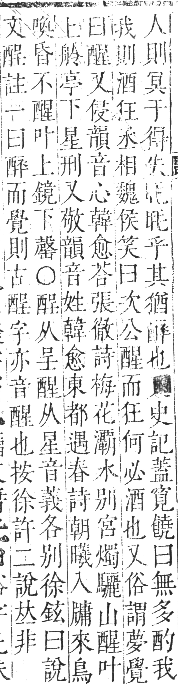 人則冥于得失㫰㫰乎其猶醉也史記蓋寬饒曰無多酌我
我則酒狂丞相魏侯笑曰次公醒而狂何必酒也又俗謂夢覺
曰醒又侵韻音心韓愈荅張徹詩梅花灞水別宮燭驪山醒叶
上廳亭下星刑又敬韻音姓韓愈東都遇春詩朝曦入牖來鳥
喚昏不醒叶上鏡下罄○醒从呈醒从星音義各別徐鉉曰說
文醒註一曰醉而覺則古醒字亦音醒也按徐許二說𠀤非